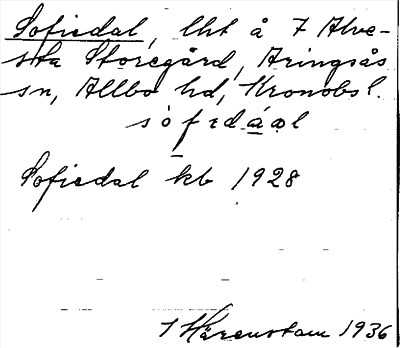 Sofiedal, lht å 7 Alve-
sta Storegård, Aringsås
sn, Allbo hd, Kronobs l.
Sofiedal kb 1928
Härenstam 1936